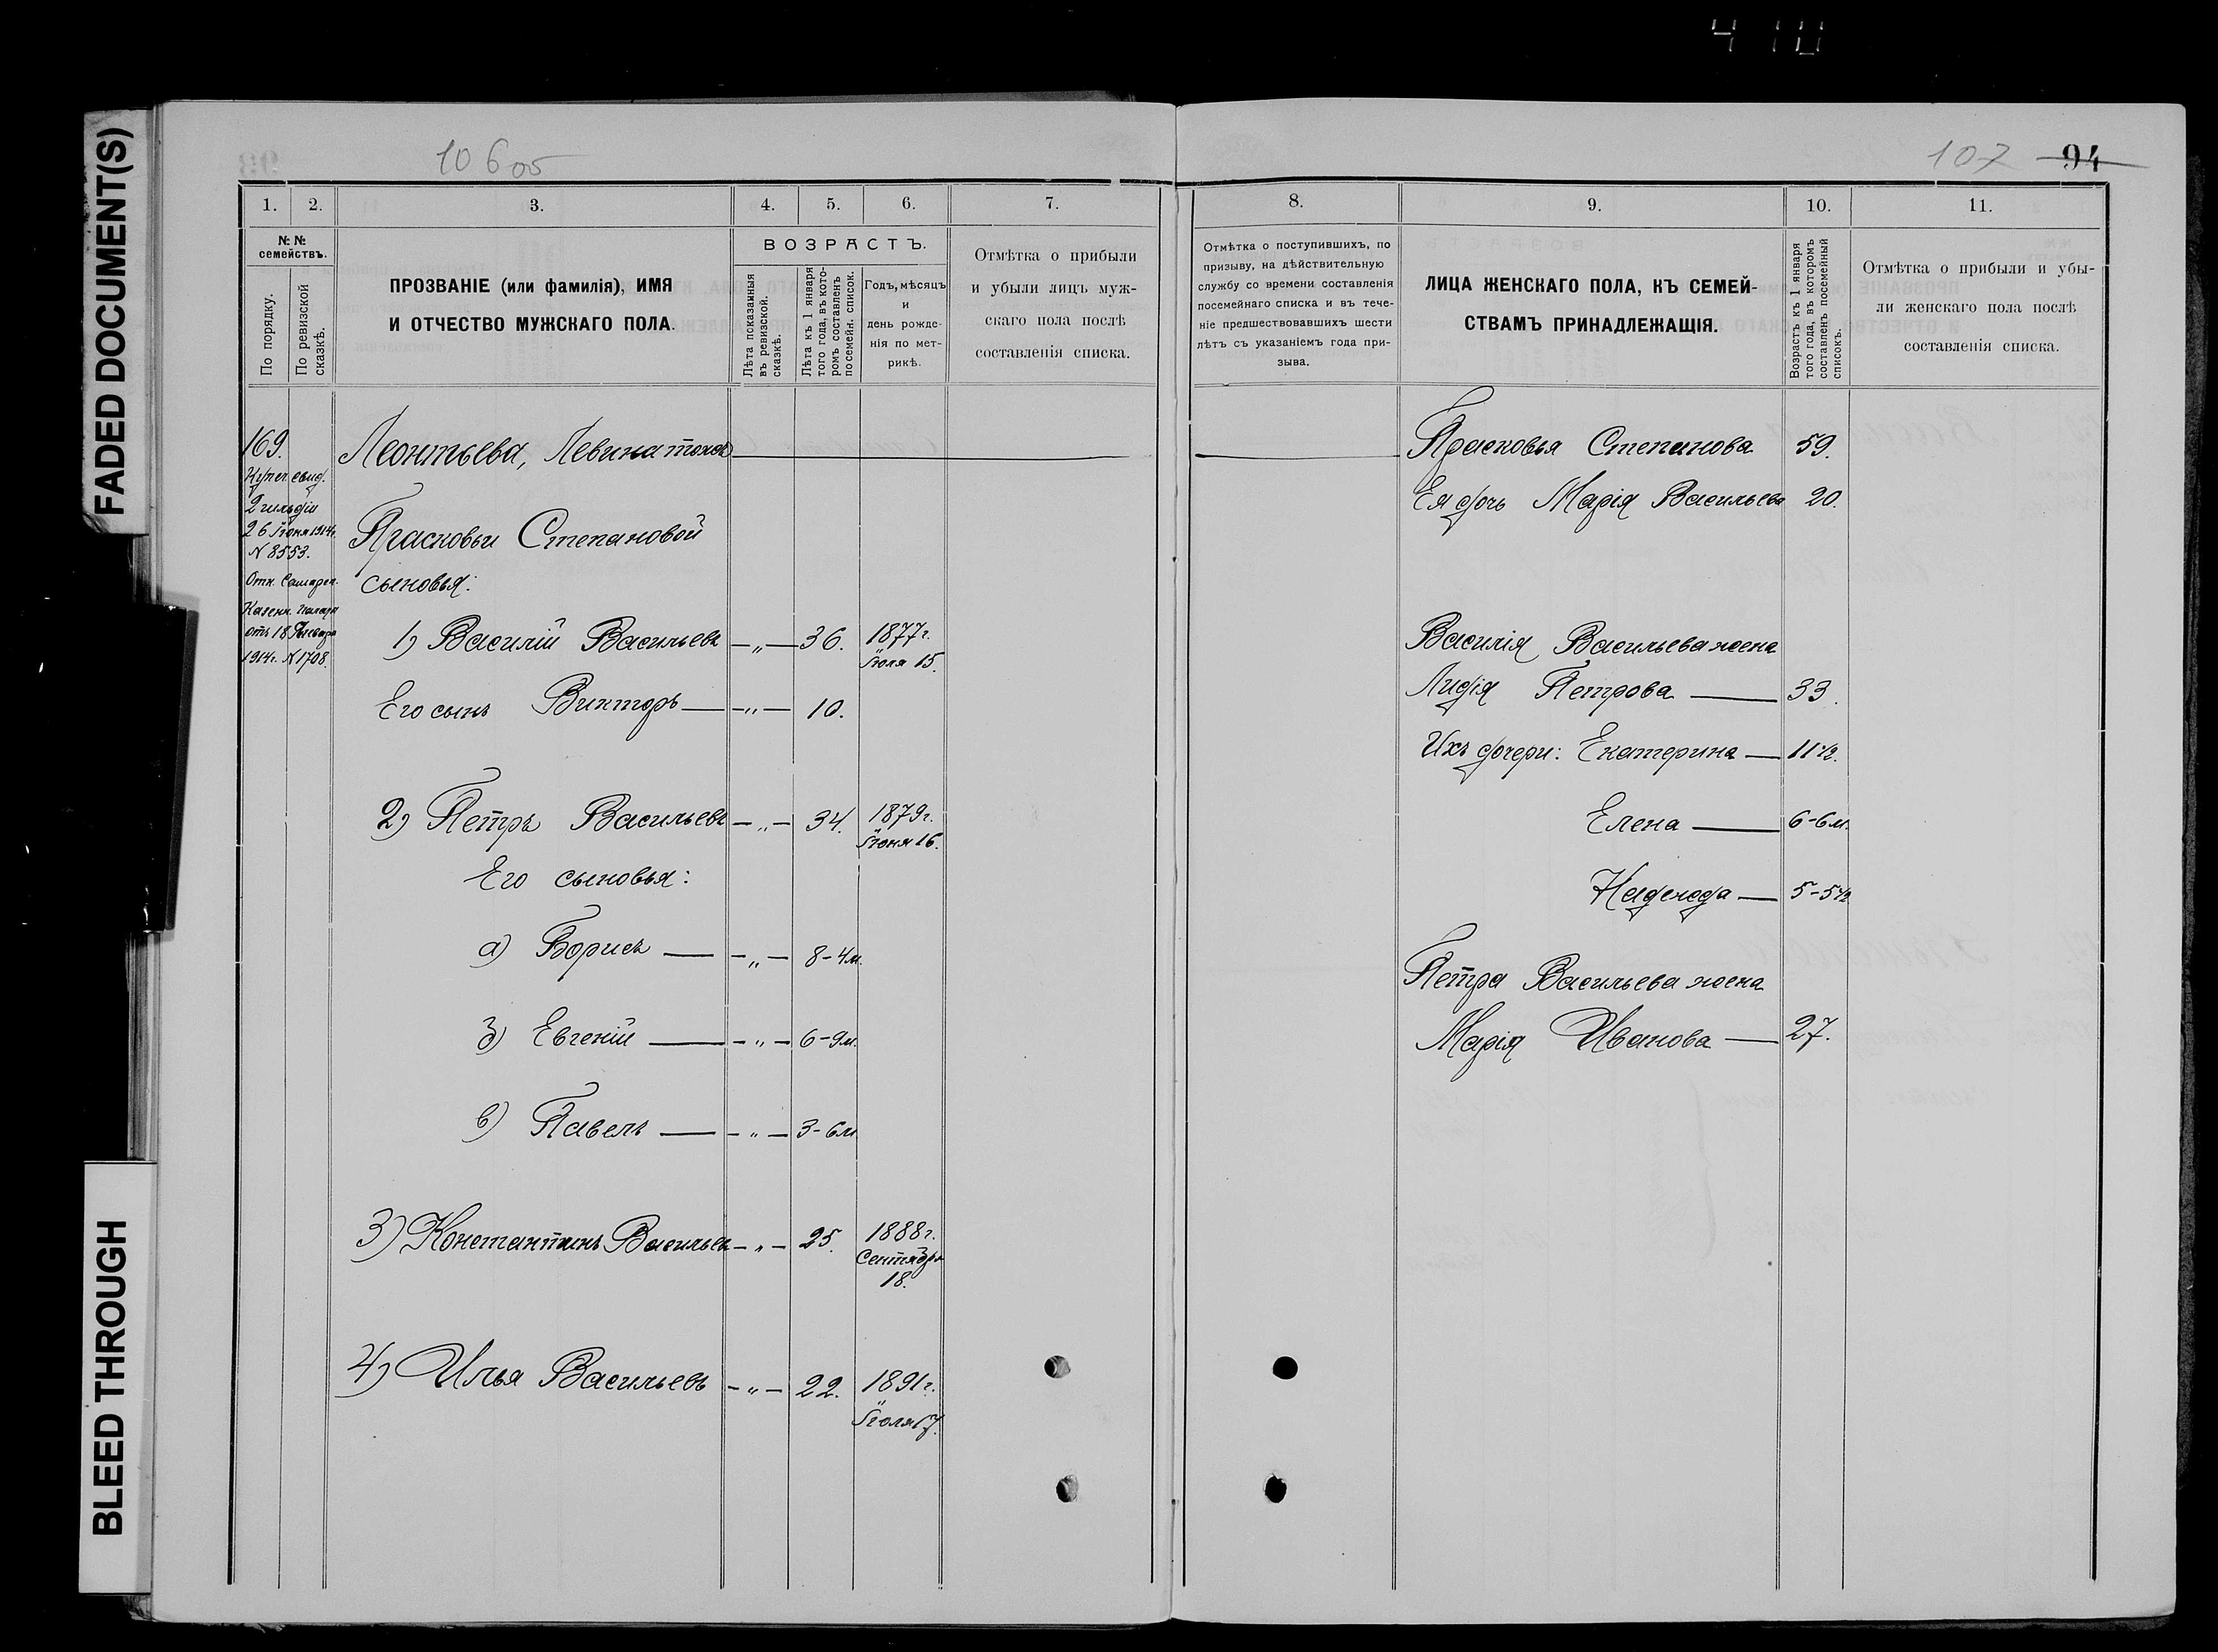 4 10
FADED DOCUMENT(S)
BLEED THROUGH
106 об
107 94
1. 2. 3. 4. 5. 6. 7.
№ №
семействъ.
По порядку.
По ревизской
сказкѣ.
ПРОЗВАНІЕ (или фамилія), ИМЯ
И ОТЧЕСТВО МУЖСКАГО ПОЛА.
ВОЗРАСТЪ.
Лѣта показанныя
въ ревизской.
сказкѣ.
Лѣта къ 1 января
того года, въ кото-
ромъ составленъ
посемейн. список.
Годъ, мѣсяцъ
и
день рожде-
нія по мет-
рикѣ.
Отмѣтка о прибыли
и убыли лицъ муж-
скаго пола послѣ
составленія списка.
169.
Купеч. свид.
2 гильдіи
26 Іюня 1914г.
N 8553.
Отн. Самарск.
Казенн. Палаты
отъ 18 Января
1914г. N 1708.
Леонтьева,
Прасковьи Степановой
сыновья:
1) Василій Васильевъ — „ — 36. 1877г.
Іюля 15.
Его сынъ Викторъ — „ — 10.
2) Петръ Васильевъ — „ — 34. 1879г.
Іюня 16.
Его сыновья:
а) Борисъ — „ — 8-4м.
б) Евгеній — „ — 6-9м.
в) Павелъ — „ — 3-6м
3) Константинъ Васильев — „ — 25. 1888г.
Сентября
18.
4) Илья Васильевъ — „ — 22. 1891г.
Іюля 17.
8. 9. 10. 11.
Отмѣтка о поступившихъ, по
призыву, на дѣйствительную
службу со времени составленія
посемейнаго списка и въ тече-
ніе предшествовавшихъ шести
лѣтъ съ указаніемъ года при-
зыва.
ЛИЦА ЖЕНСКАГО ПОЛА, КЪ СЕМЕЙ-
СТВАМЪ ПРИНАДЛЕЖАЩІЯ.
Возрастъ къ 1 января
того года, въ которомъ
составленъ посемейный
списокъ.
Отмѣтка о прибыли и убы-
ли женскаго пола послѣ
составленія списка.
Прасковья Степанова 59.
Ея дочь Марія Васильева 20.
Василія Васильева жена
Лидія Петрова — 33.
Ихъ дочери: Екатерина — 11 1/2.
Елена — 6-6м.
Надежда — 5-5 1/2
Петра Васильева жена
Марія Иванова — 27.